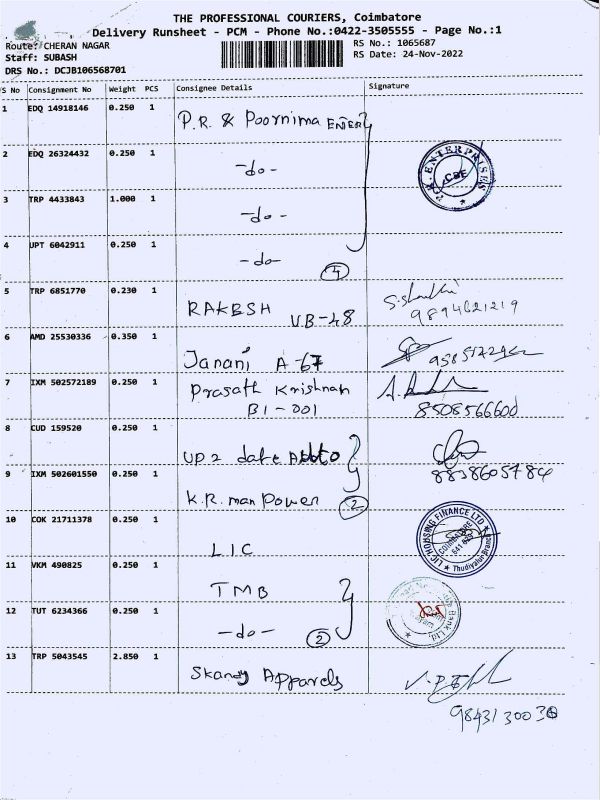 THE PROFESSIONAL COURIERS, Coimbatore
Delivery Runsheet - PCM - Phone No.:0422-3505555 - Page No.:1
Route: CHERAN NAGAR
RS No.: 1065687
Staff: SUBASH
RS Date: 24-Nov-2022
DRS No.: DCJB106568701
S No Consignment No Weight PCS Consignee Details Signature
1 EDQ 14918146 0.250 1 P.R. & Poornima ENTER
2 EDQ 26324432 0.250 1 -do-
ENTERPRISES
CBE
3 TRP 4433843 1.000 1 -do-
4 UPT 6042911 0.250 1 -do- 4
5 TRP 6851770 0.230 1 RAKESH VB-48
9894621219
6 AMD 25530336 0.350 1 Janani A-67
7 IXM 502572189 0.250 1 Prasath Krishnan
B1-001
8508566600
8 CUD 159520 0.250 1 UP2 date
8838605784
9 IXM 502601550 0.250 1 K.R. man power 2
10 COK 21711378 0.250 1 LIC
LIC HOUSING FINANCE LTD
COIMBATORE
Thudiyalur Branch
11 VKM 490825 0.250 1 TMB
12 TUT 6234366 0.250 1 -do- 2
Bank Ltd.
13 TRP 5043545 2.850 1 Skandy Apparels